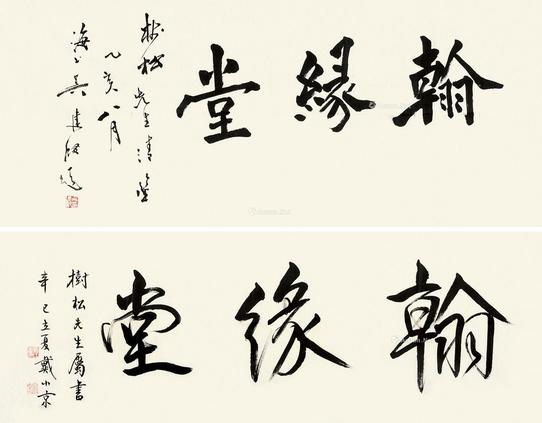 翰緣堂
树松先生清鉴
乙亥八月
海上吴建贤题
翰缘堂
樹松先生屬書
辛巳立夏戴小京